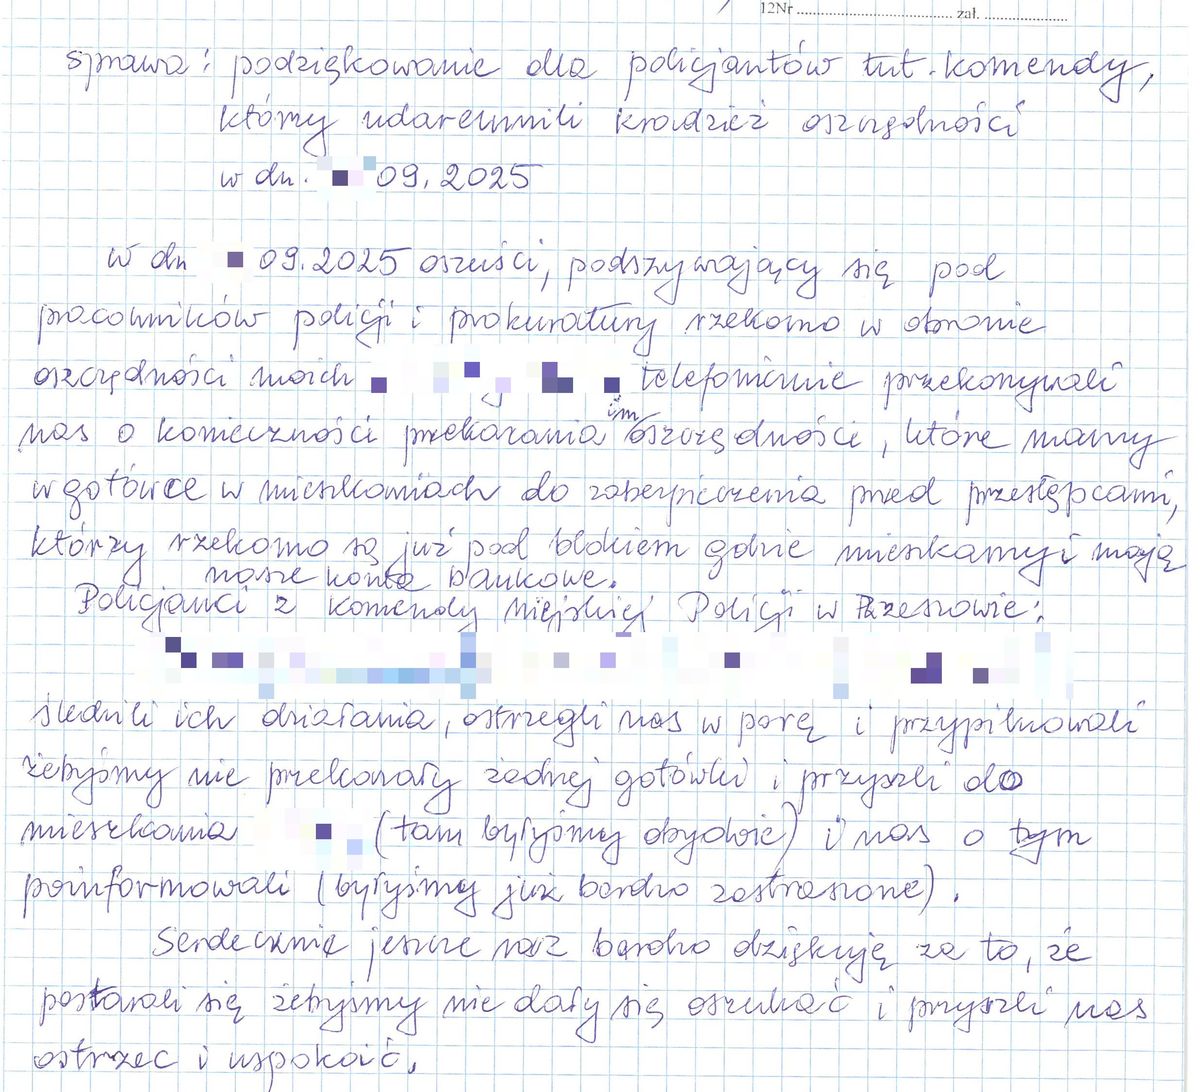 12Nr ........................ zał. ................
sprawa: podziękowanie dla policjantów tut. komendy,
którzy udaremnili kradzież oszczędności
w dn. 09. 2025
w dn 09.2025 oszuści, podszywający się pod
pracowników policji i prokuratury rzekomo w obronie
oszczędności moich telefonicznie przekonywali
nas o konieczności przekazania im oszczędności, które mamy
w gotówce w mieszkaniach do zabezpieczenia przed przestępcami,
którzy rzekomo są już pod blokiem gdzie mieszkamy i mają
nasze konta bankowe.
Policjanci z komendy miejskiej Policji w Rzeszowie:
śledzili ich działania, ostrzegli nas w porę i przypilnowali
żebyśmy nie przekazały żadnej gotówki i przyszli do
mieszkania (tam byłyśmy obydwie) i nas o tym
poinformowali (byłyśmy już bardzo zastraszone).
Serdecznie jeszcze raz bardzo dziękuję za to, że
postarali się żebyśmy nie dały się oszukać i przyszli nas
ostrzec i uspokoić.